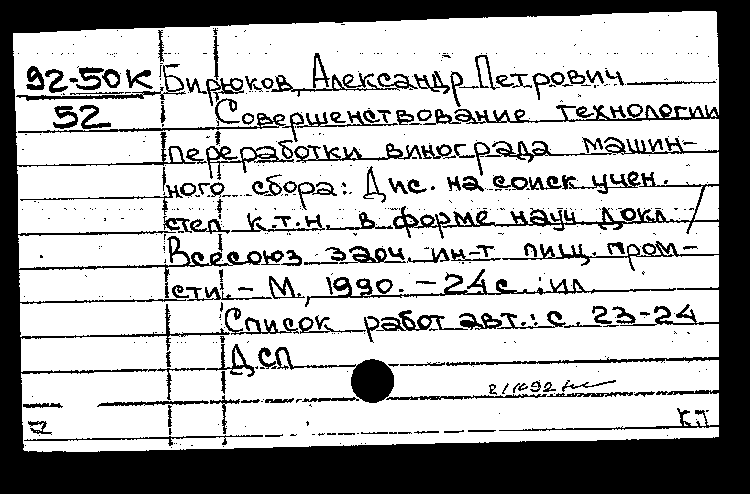 92-50К Бирюков, Александр Петрович
52 Совершенствование технологии
переработки винограда машин-
ного сбора: Дис. на соиск учен.
степ к.т.н. в форме науч докл /
Всесоюз заоч. ин-т пищ. пром-
сти. – М., 1990. – 24с. : ил.
Список работ авт.: с. 23-24
ДСП
КП